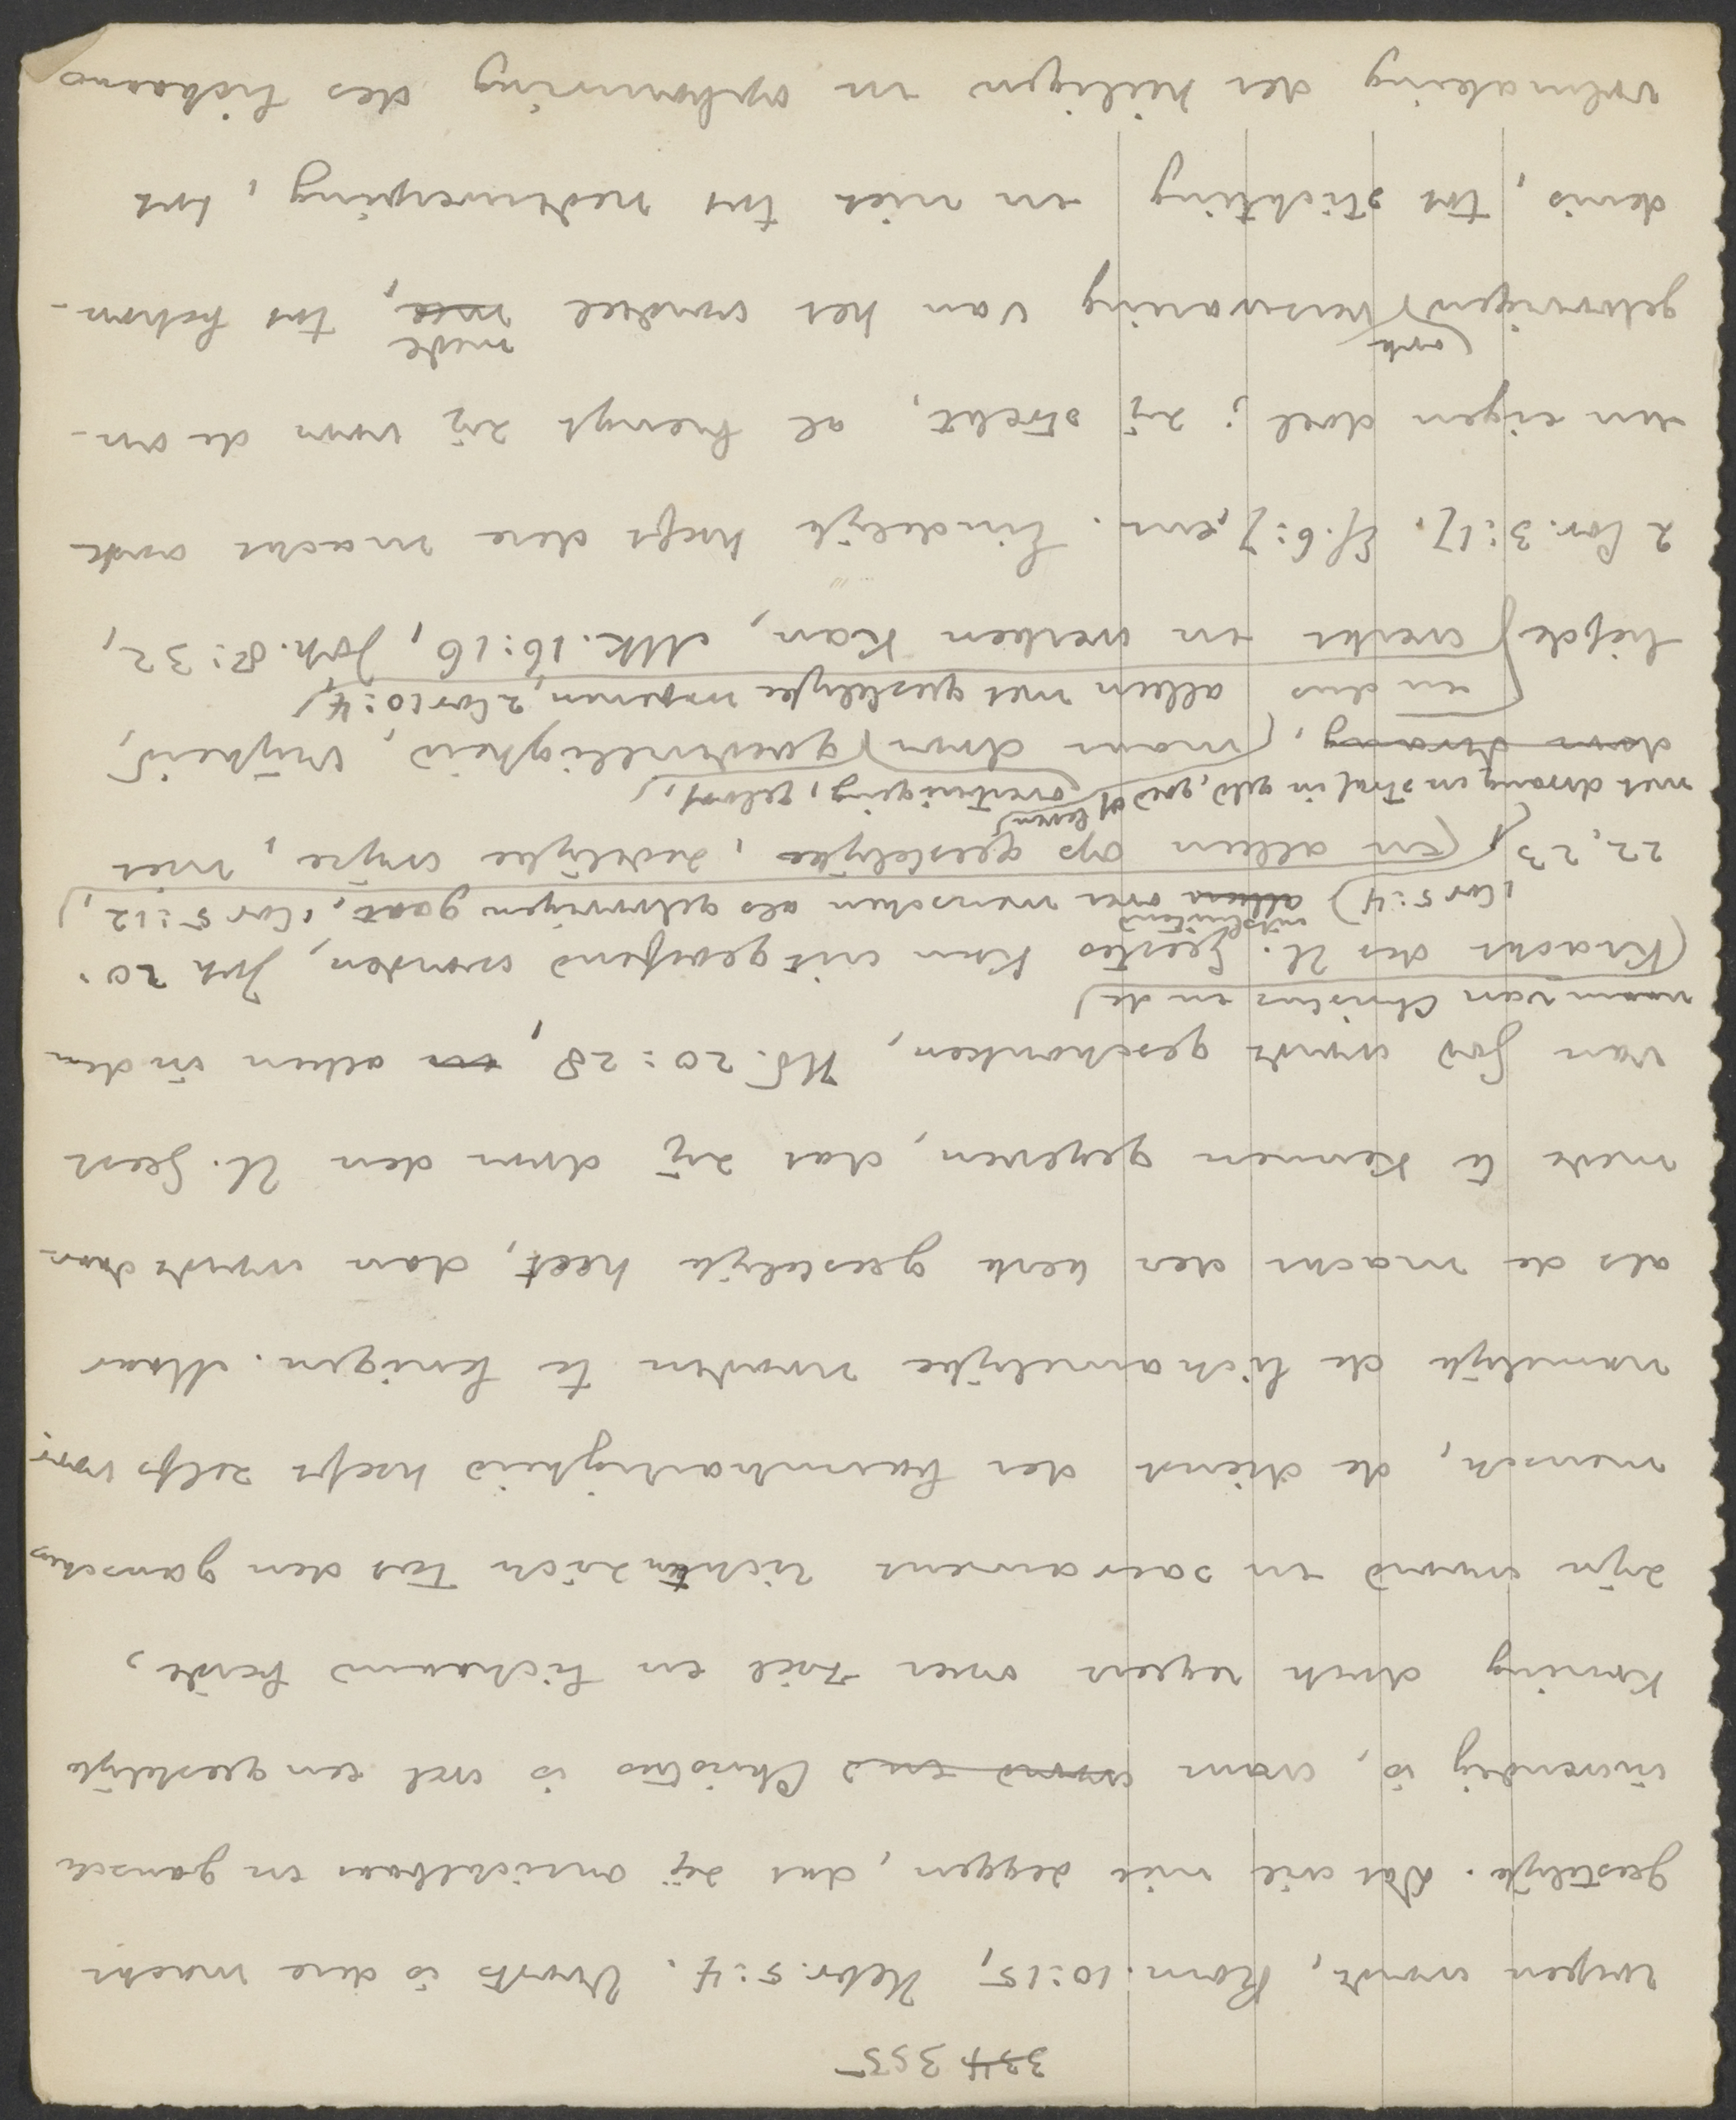 334 355
roepen wordt, Rom. 10:15, Hebr. 5:4. Voorts is deze macht
geestelijk. Dat wil niet zeggen, dat zij onzichtbaar en gansch
inwendig is, want woord end Christus is wel een geestelijk
Koning doch regeert over ziel en lichaam beide,
zijn woord en sacrament richten zich tot den ganschen
mensch, de dienst der barmhartigheid heeft zelfs voor-
namelijk de lichamelijke nooden te lenigen. Maar
als de macht der kerk geestelijk heet, dan wordt daar-
mede te kennen gegeven, dat zij door den H. Geest
van God wordt geschonken, Hd. 20:28, en alleen in den
naam van Christus en de
(kracht des H. Geestes kan uitgeoefend worden, Joh 20:
1 Cor 5:4) alleen uitsluitend over menschen als geloovigen gaat, 1 Cor 5:12,
22, 23, (en alleen op geestelijke, zedelijke wijze, niet
met dwang en straf in geld, goed of leven, overtuiging, geloof,
door dwang, (maar door) goedwilligheid, vrijheid,
en dus alleen met geestelijke wapenen, 2 Cor 10:4,
liefde) werkt en werken kan, Mk. 16:16, Joh. 8:32,
2 Cor. 3:17, Ef. 6:7, enz. Eindelijk heeft deze macht ook
een eigen doel; zij strekt, al brengt zij voor de on-
geloovigen (ook verzwaring van het oordeel mee mede, tot behou-
denis, tot stichting en niet tot nederwerping, tot
volmaking der heiligen en opbouwing des lichaams